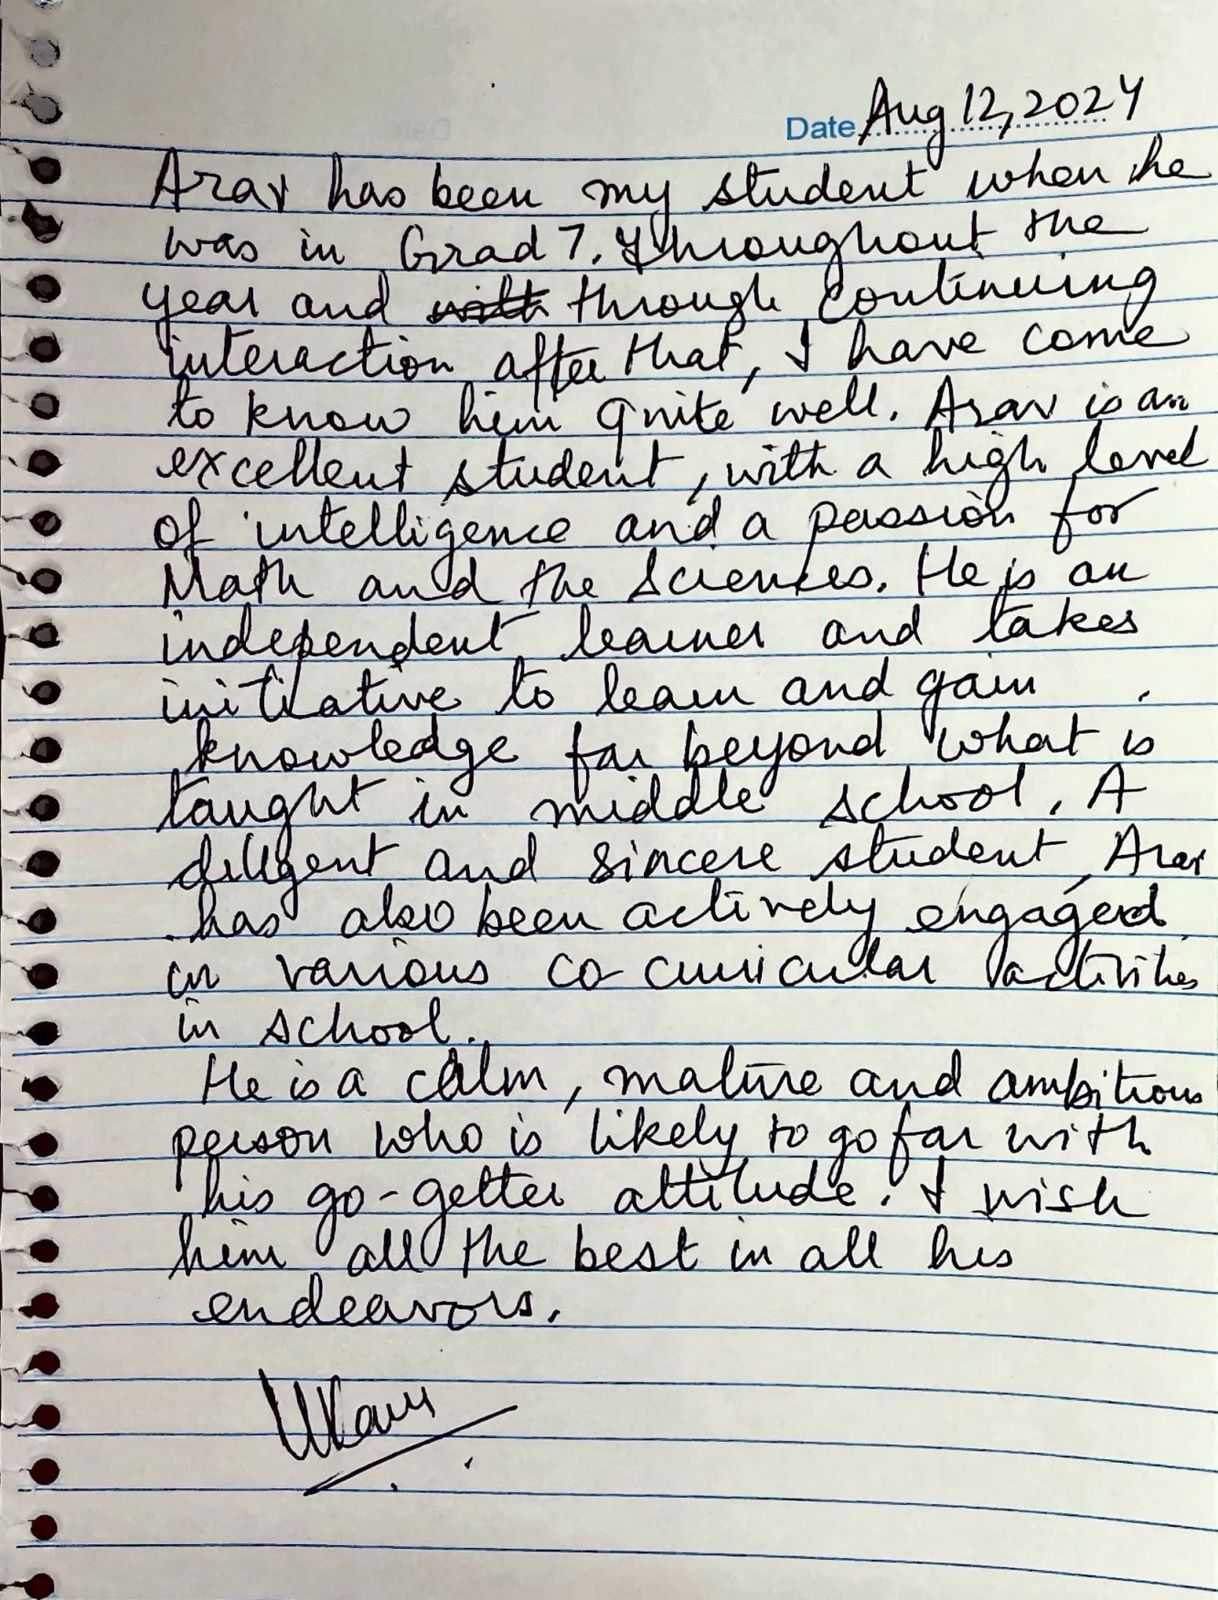 Date Aug 12, 2024
Arav has been my student when he
was in Grad 7. Throughout the
year and through continuing
interaction after that, I have come
to know him quite well. Arav is an
excellent student, with a high level
of intelligence and a passion for
Math and the Sciences. He is an
independent learner and takes
initiative to learn and gain
knowledge far beyond what is
taught in middle school. A
diligent and sincere student, Arav
has also been actively engaged
in various co-curricular activities
in school.
He is a calm, mature and ambitious
person who is likely to go far with
his go-getter attitude. I wish
him all the best in all his
endeavors.